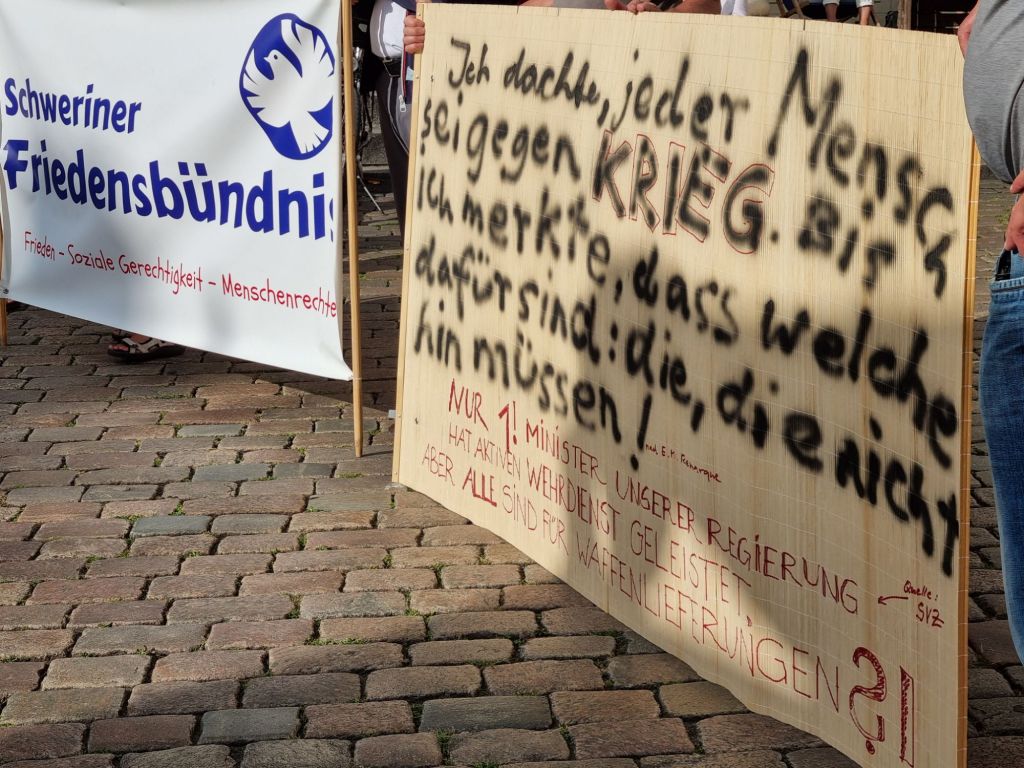 Schweriner
Friedensbündnis
Frieden – Soziale Gerechtigkeit – Menschenrechte
Ich dachte, jeder Mensch
sei gegen KRIEG. Bis
ich merkte, dass welche
dafür sind: die, die nicht
hin müssen!
nach E. M. Remarque
NUR 1! MINISTER UNSERER REGIERUNG
HAT AKTIVEN WEHRDIENST GELEISTET
ABER ALLE SIND FÜR WAFFENLIEFERUNGEN ?!
Quelle:
SVZ